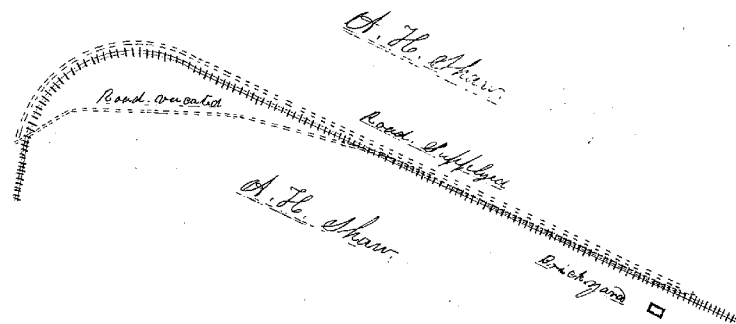 A. H. Shaw.
Road vacated
Road Supplyed
A. H. Shaw.
Brickyard